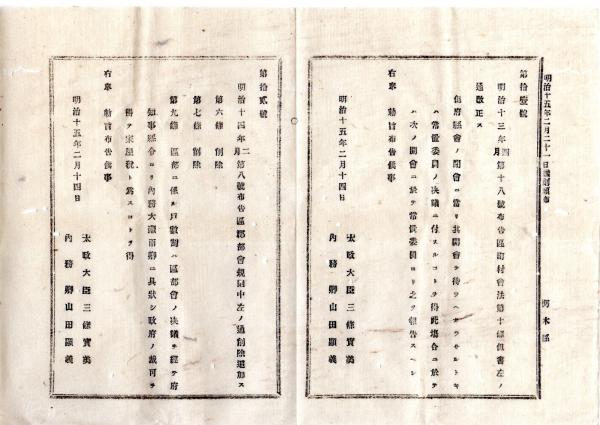 明治十五年二月二十一日
第拾壹號
明治十三年四月第十八號布告區町村會法第十條但書左ノ
通改正ス
但府縣會ノ開會ニ當リ其開會ヲ待ツヘカラサルトキ
ハ常置委員ノ决議ニ付スルコトヲ得此塲合ニ於テ
ハ次ノ開會ニ於テ常置委員ヨリ之ヲ報告スヘシ
右奉 勅旨布告候事
明治十五年二月十四日
太政大臣三條實美
內務卿山田顯義
第拾貳號
明治十四年二月第八號布告區郡部會規則中左ノ通削除追加ス
第六條 削除
第七條 削除
第九條 區部ニ係ル戶數割ハ區部會ノ决議ヲ經テ府
知事縣令ヨリ內務大藏兩卿ニ具狀シ政府ノ裁可ヲ
得テ家屋稅ト爲スコトヲ得
右奉 勅旨布告候事
明治十五年二月十四日
太政大臣三條實美
內務卿山田顯義